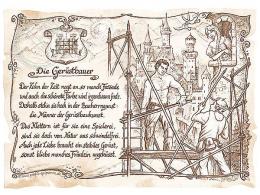 Die Gerüstbauer
Der Zahn der Zeit nagt an so mancher Fassade
und auch die schönste Farbe wird irgendwann fade.
Deshalb stehen sie hoch in der Bauherrengunst:
die Männer der Gerüstbaukunst.
Das Klettern ist für sie eine Spielerei,
sind sie doch von Natur aus schwindelfrei.
Auch jede Liebe braucht ein stabiles Gerüst,
sonst bliebe manches Fräulein ungeküsst.